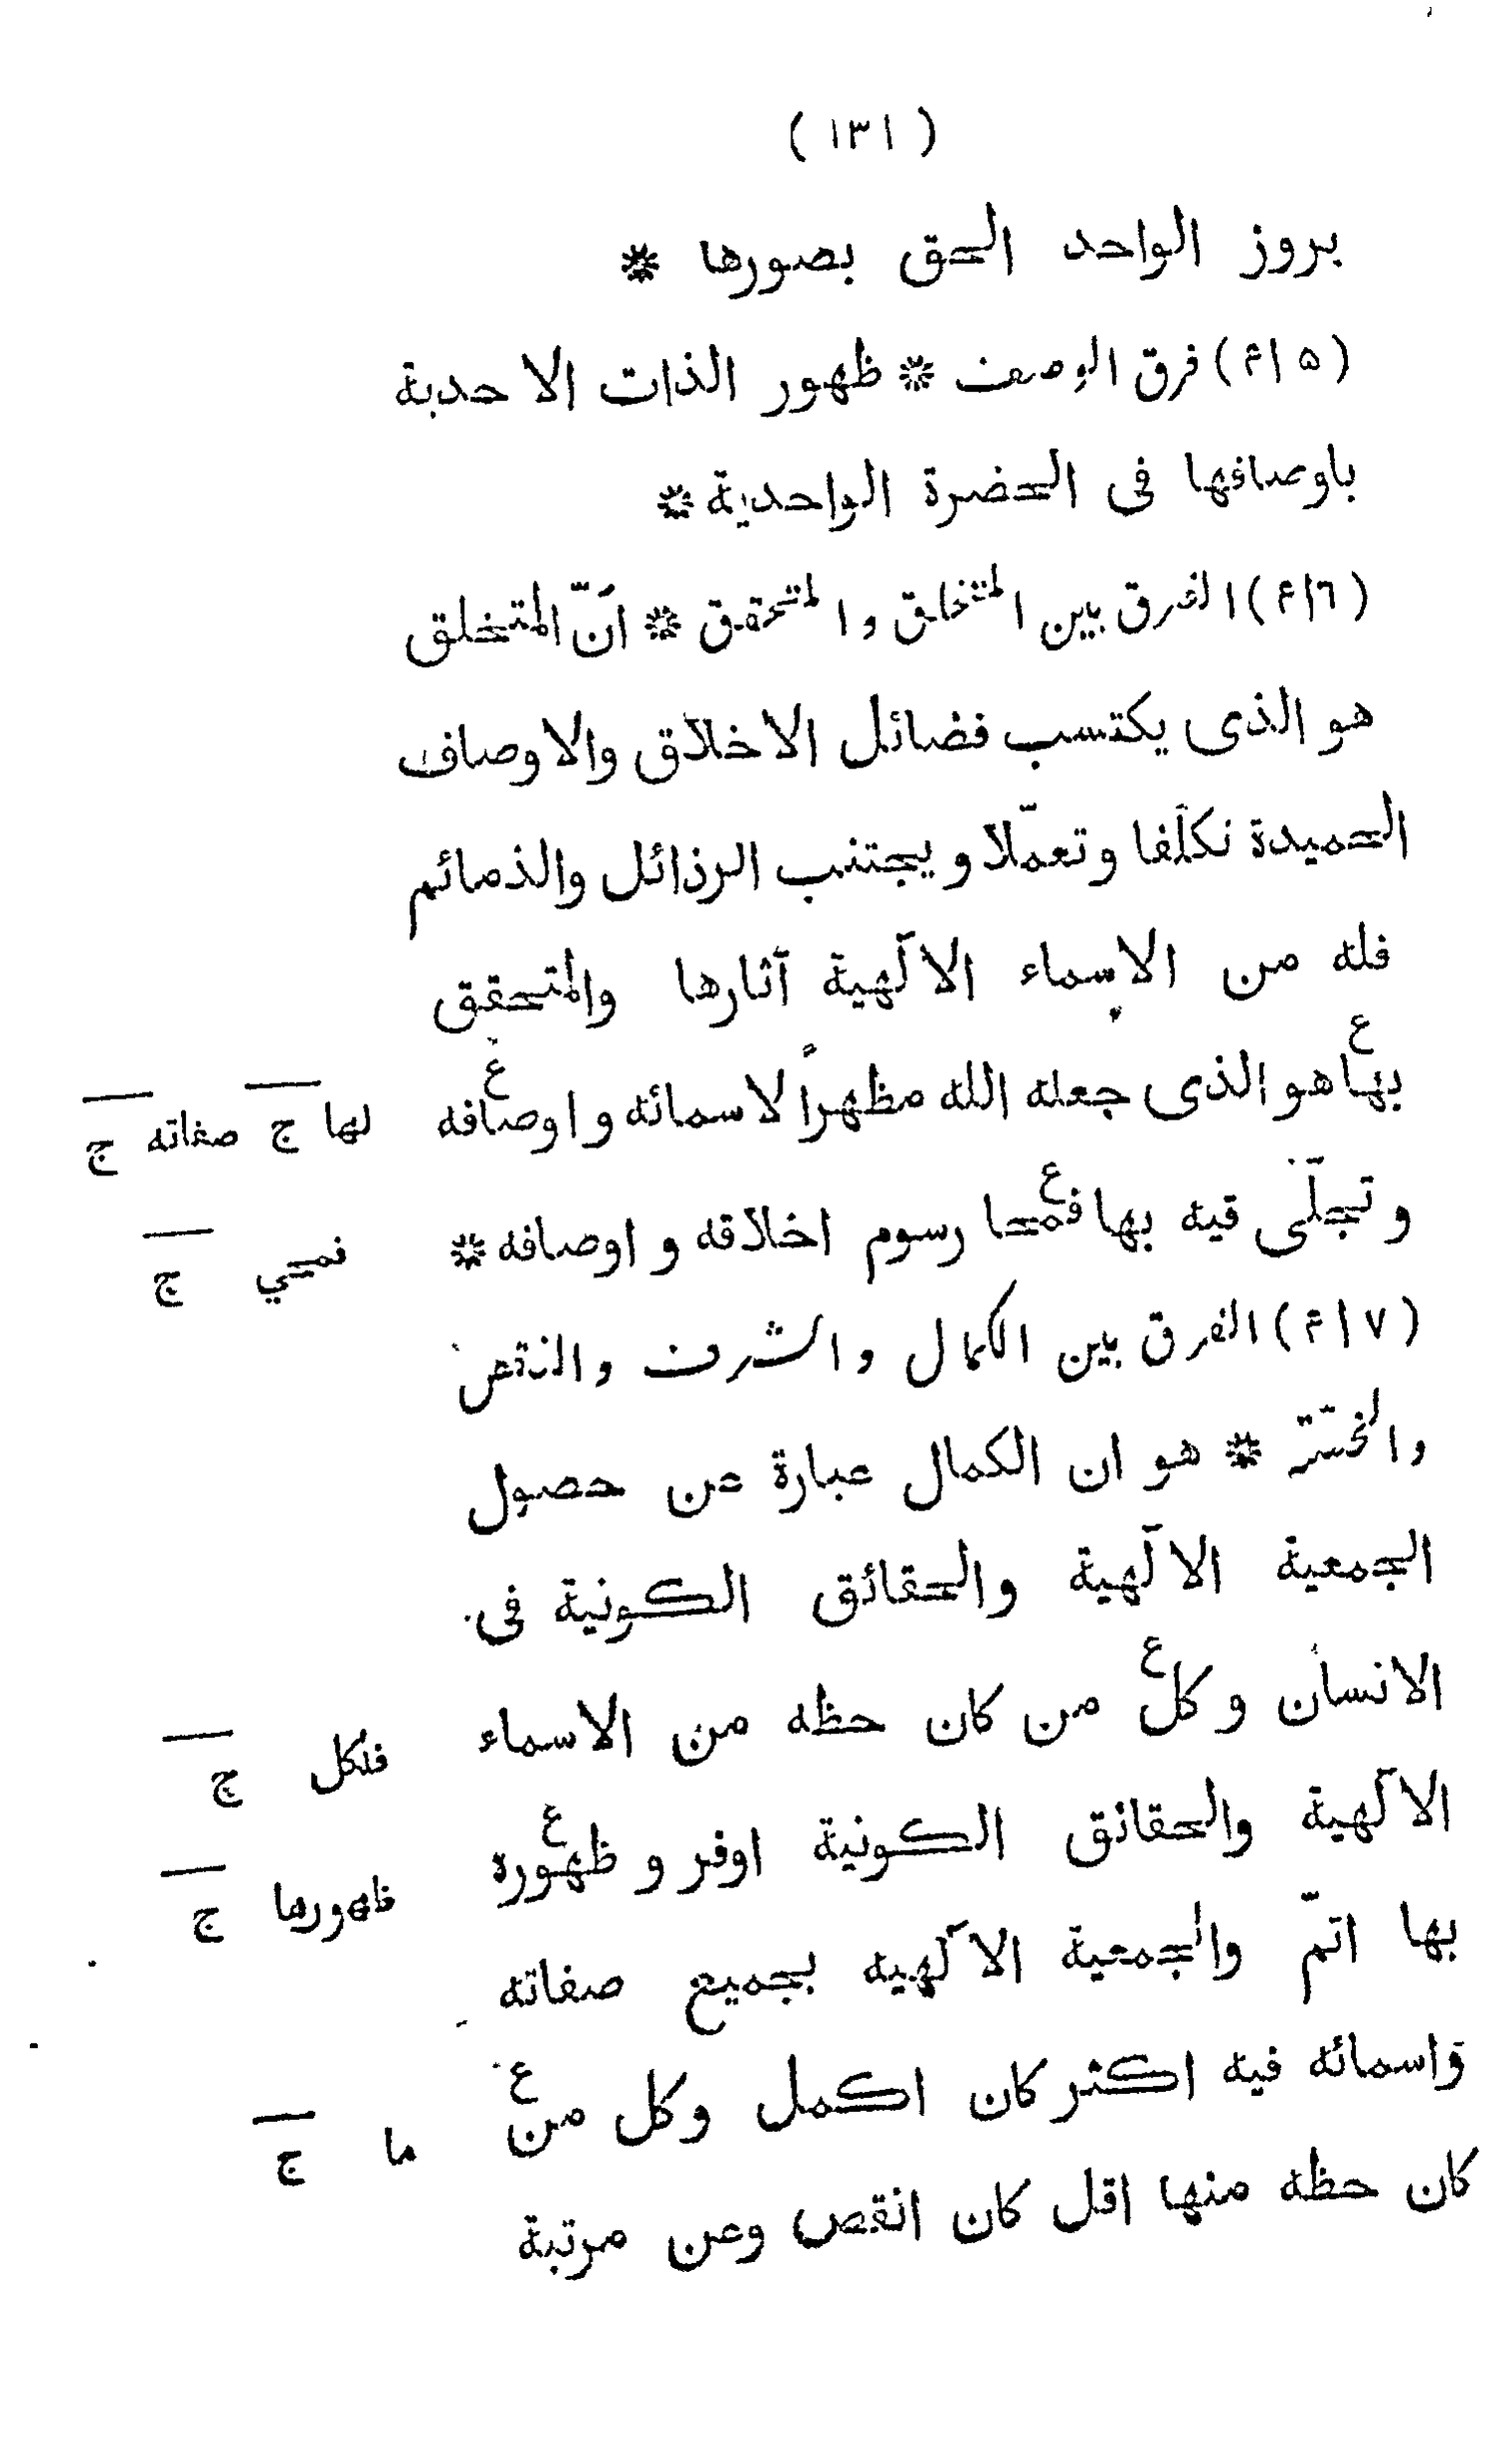 ( ١٣١ )
بروز الواحد الحق بصورها *
( ٤١٥ ) فرق الوصف * ظهور الذات الاحدية
باوصافها فى الحضرة الواحدية *
( ٤١٦ ) الفرق بين المتخلق والمتحقق * انّ المتخلق
هو الذى يكتسب فضائل الاخلاق والاوصاف
الحميدة تكلّفا وتعمّلا ويجتنب الرذائل والذمائم
فله من الاسماء الالٓهية آثارها والمتحقق
بهاع هو الذى جعله الله مظهراً لاسمائه واوصافهع لها ج صفاته ج
وتجلّى فيه بها فمحاع رسوم اخلاقه واوصافه * فمحي ج
( ٤١٧ ) الفرق بين الكمال والشرف والنقص
والخسّة * هو ان الكمال عبارة عن حصول
الجمعية الالٓهية والحقائق الكونية فى
الانسان وكلع من كان حظه من الاسماء فلكل ج
الالٓهية والحقائق الكونية اوفر وظهورهع ظهورها ج
بها اتمّ والجمعية الالٓهيه بجميع صفاته
واسمائه فيه اكثر كان اكمل وكل منع ما ج
كان حظه منها اقل كان انقص وعن مرتبة